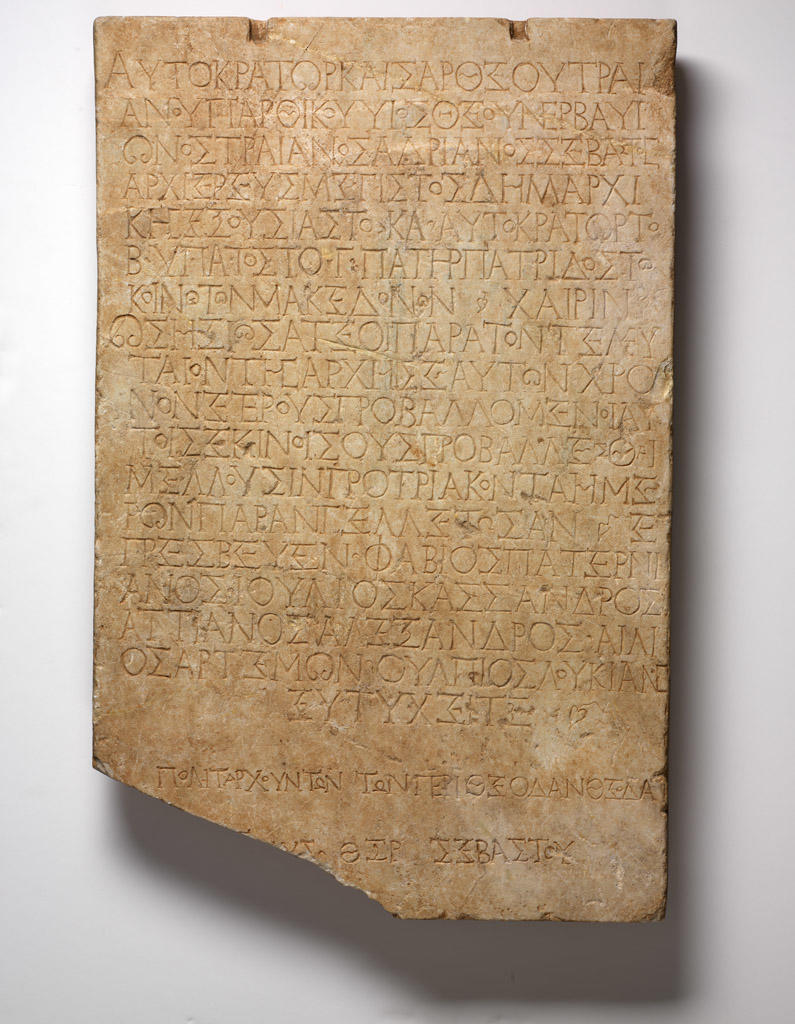 ΑΥΤΟΚΡΑΤΩΡΚΑΙΣΑΡΘΕΟΥΤΡΑΙ
ΑΝΟΥΠΑΡΘΙΚΟΥΥΙΟΣΘΕΟΥΝΕΡΒΑΥΙ
ΩΝΟΣΤΡΑΙΑΝΟΣΑΔΡΙΑΝΟΣΣΕΒΑΣΤΟΣ
ΑΡΧΙΕΡΕΥΣΜΕΓΙΣΤΟΣΔΗΜΑΡΧΙ
ΚΗΣΕΞΟΥΣΙΑΣΤΟ·ΚΑ·ΑΥΤΟΚΡΑΤΩΡΤΟ
Β·ΥΠΑΤΟΣΤΟ·Γ·ΠΑΤΗΡΠΑΤΡΙΔΟΣΤΩ
ΚΟΙΝΩΤΩΝΜΑΚΕΔΟΝΩΝ ΧΑΙΡΙΝ
ΩΣΗΞΙΩΣΑΤΕΟΙΠΑΡΑΤΟΝΤΕΛΕΥ
ΤΑΙΟΝΤΗΣΑΡΧΗΣΕΑΥΤΩΝΧΡΟ
ΝΟΝΕΤΕΡΟΥΣΠΡΟΒΑΛΛΟΜΕΝΟΙΑΥ
ΤΟΙΣΕΚΙΝΟΙΣΟΥΣΠΡΟΒΑΛΛΕΣΘΑΙ
ΜΕΛΛΟΥΣΙΝΠΡΟΤΡΙΑΚΟΝΤΑΗΜΕ
ΡΩΝΠΑΡΑΝΓΕΛΛΕΤΩΣΑΝ Ε
ΠΡΕΣΒΕΥΕΝ·ΦΑΒΙΟΣΠΑΤΕΡΝΙ
ΑΝΟΣΙΟΥΛΙΟΣΚΑΣΣΑΝΔΡΟΣ
ΑΤΤΙΑΝΟΣΑΛΕΞΑΝΔΡΟΣ·ΑΙΛΙ
ΟΣΑΡΤΕΜΩΝΟΥΛΠΙΟΣΛΟΥΚΙΑΝΟΣ
ΕΥΤΥΧΕΙΤΕ
ΠΟΛΙΤΑΡΧΟΥΝΤΩΝ ΤΩΝΠΕΡΙΘΕΟΔΑΝΘΕΟΔΑ
ΟΥΣ ΘΞΡ ΣΕΒΑΣΤΟΥ